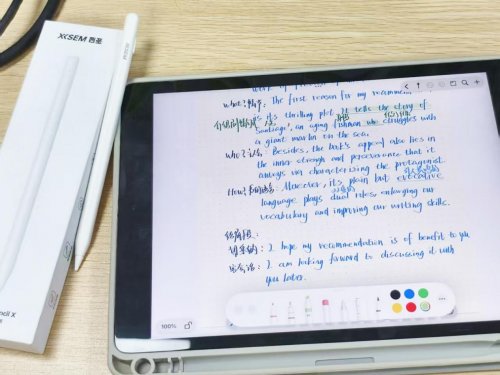 XISEM 西圣
work of
What?情节: The first reason for my recommen
is its thrilling plot. It tells the story of
Santiago, an aging fisherman who struggles with
a giant marlin on the sea.
Who? : Besides, the book's appeal also lies in
the inner strength and perseverance that it
conveys via characterizing the protagonist.
How? : Moreover, its plain but evocative
language plays dual roles, enlarging our
vocabulary and improving our writing skills.
结尾段:
I hope my recommendation is of benefit to you
I am looking forward to discussing it with
you later.
100%
ncil X